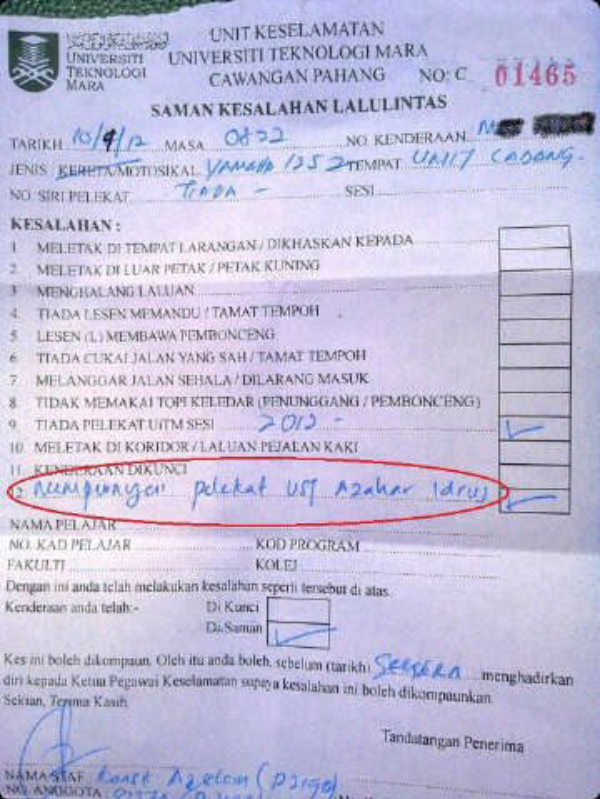 UNIT KESELAMATAN
UNIVERSITI TEKNOLOGI MARA
CAWANGAN PAHANG
NO: C 01465
UNIVERSITI
TEKNOLOGI
MARA
SAMAN KESALAHAN LALULINTAS
TARIKH 10/9/12 MASA 0822 NO. KENDERAAN
JENIS KERETA/MOTOSIKAL YAMAHA 125Z TEMPAT UNIT CADANG.
NO SIRI PELEKAT TIADA - SESI
KESALAHAN :
1. MELETAK DI TEMPAT LARANGAN / DIKHASKAN KEPADA
2. MELETAK DI LUAR PETAK / PETAK KUNING
3. MENGHALANG LALUAN
4. TIADA LESEN MEMANDU / TAMAT TEMPOH
5. LESEN (L) MEMBAWA PEMBONCENG
6. TIADA CUKAI JALAN YANG SAH / TAMAT TEMPOH
7. MELANGGAR JALAN SEHALA / DILARANG MASUK
8. TIDAK MEMAKAI TOPI KELEDAR (PENUNGGANG / PEMBONCENG)
9. TIADA PELEKAT UITM SESI 2012 -
10. MELETAK DI KORIDOR / LALUAN PEJALAN KAKI
11. KENDERAAN DIKUNCI
12. pelekat UST Azahar Idrus
NAMA PELAJAR
NO. KAD PELAJAR KOD PROGRAM
FAKULTI KOLEJ
Dengan ini anda telah melakukan kesalahan seperti tersebut di atas.
Kenderaan anda telah:- Di Kunci
Di Saman
Kes ini boleh dikompaun. Oleh itu anda boleh, sebelum (tarikh) SEGERA menghadirkan
diri kepada Ketua Pegawai Keselamatan supaya kesalahan ini boleh dikompaunkan.
Sekian, Terima Kasih.
Tandatangan Penerima
NAMA STAF
NO. ANGGOTA